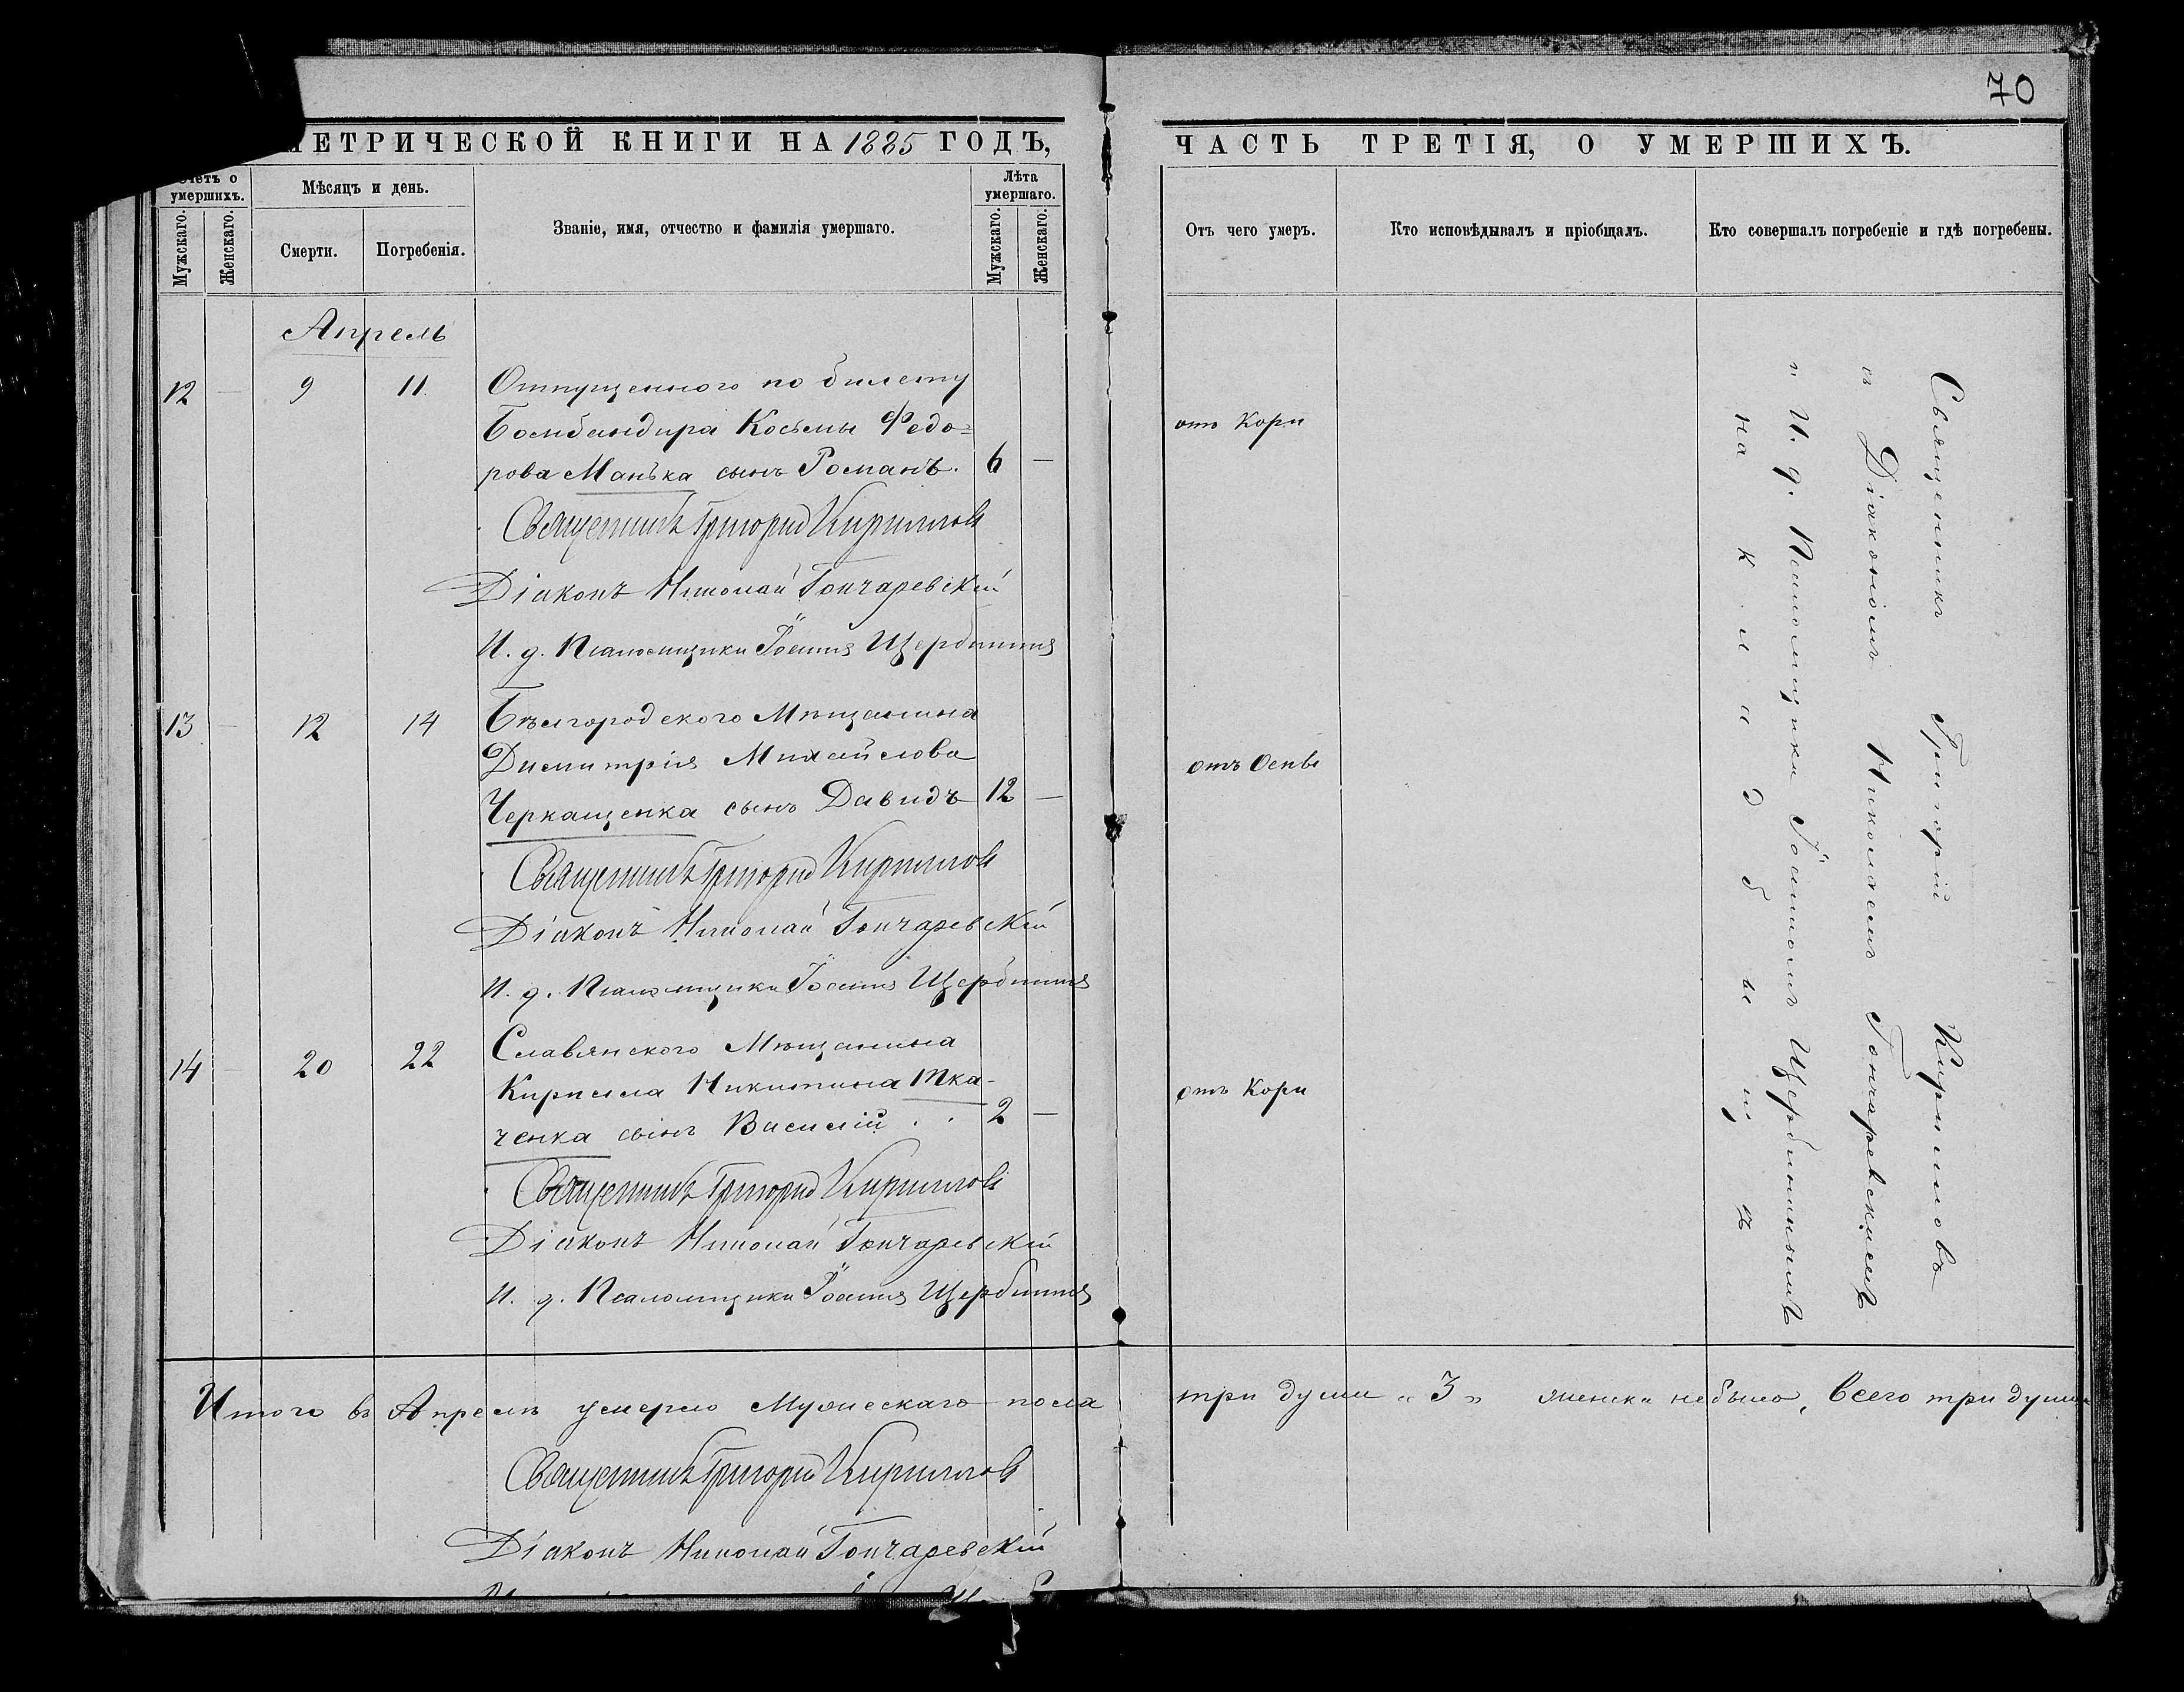 70
МЕТРИЧЕСКОЙ КНИГИ НА 1885 ГОДЪ,
ЧАСТЬ ТРЕТІЯ, О УМЕРШИХЪ.
Счетъ о умершихъ.
Мѣсяцъ и день.
Званіе, имя, отчество и фамилія умершаго.
Лѣта умершаго.
Мужскаго.
Женскаго.
Смерти.
Погребенія.
Мужскаго.
Женскаго.
Отъ чего умеръ.
Кто исповѣдывалъ и пріобщалъ.
Кто совершалъ погребеніе и гдѣ погребены.
Апрель
12 — 9 11 Отпущенного по билету
Бомбандира Косьмы Федо=
рова Манька сынъ Романъ. 6 —
отъ Кори
Священникъ Григорій Кирилловъ
Діаконъ Николай Гончаревскій
И. д. Псаломщика Іоаннъ Щербининъ
13 — 12 14 Бѣлгородского Мѣщанина
Димитрія Михайлова
Черкащенка сынъ Давидъ 12 —
отъ Оспы
Священникъ Григорій Кирилловъ
Діаконъ Николай Гончаревскій
И. д. Псаломщика Іоаннъ Щербининъ
14 — 20 22 Славянского Мѣщанина
Кирилла Никитина Тка-
ченка сынъ Василій . . 2 —
отъ Кори
Священникъ Григорій Кирилловъ
Діаконъ Николай Гончаревскій
И. д. Псаломщика Іоаннъ Щербининъ
Священникъ Григорій Кирилловъ
съ Діакономъ Николаемъ Гончаревскимъ
и И. д. Псаломщика Іоанномъ Щербининымъ
на кладбыщѣ
Итого въ Апрелѣ умерло Мужескаго пола три души "3" женска небыло, всего три души
Священникъ Григорій Кирилловъ
Діаконъ Николай Гончаревскій